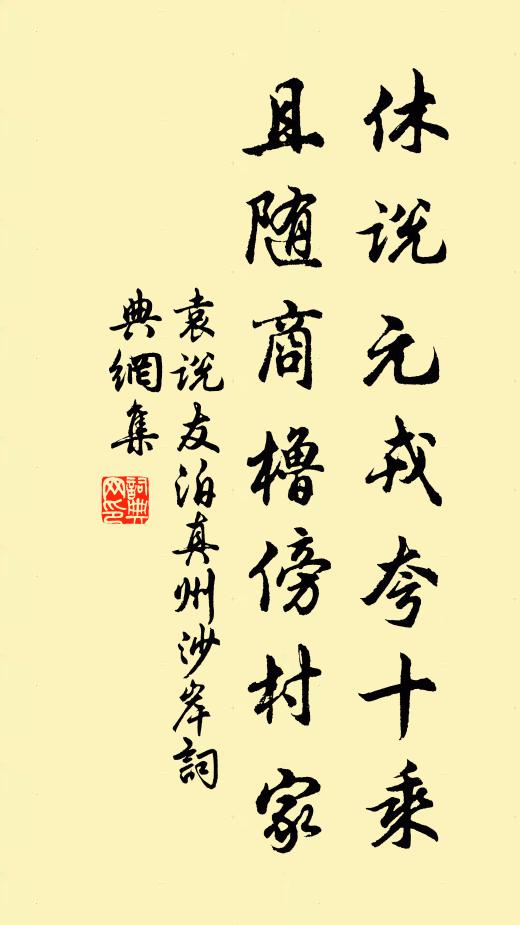 休说元戎夸十乘
且随商橹傍村家
袁说友泊真州沙岸詞
典網集
詞典网印